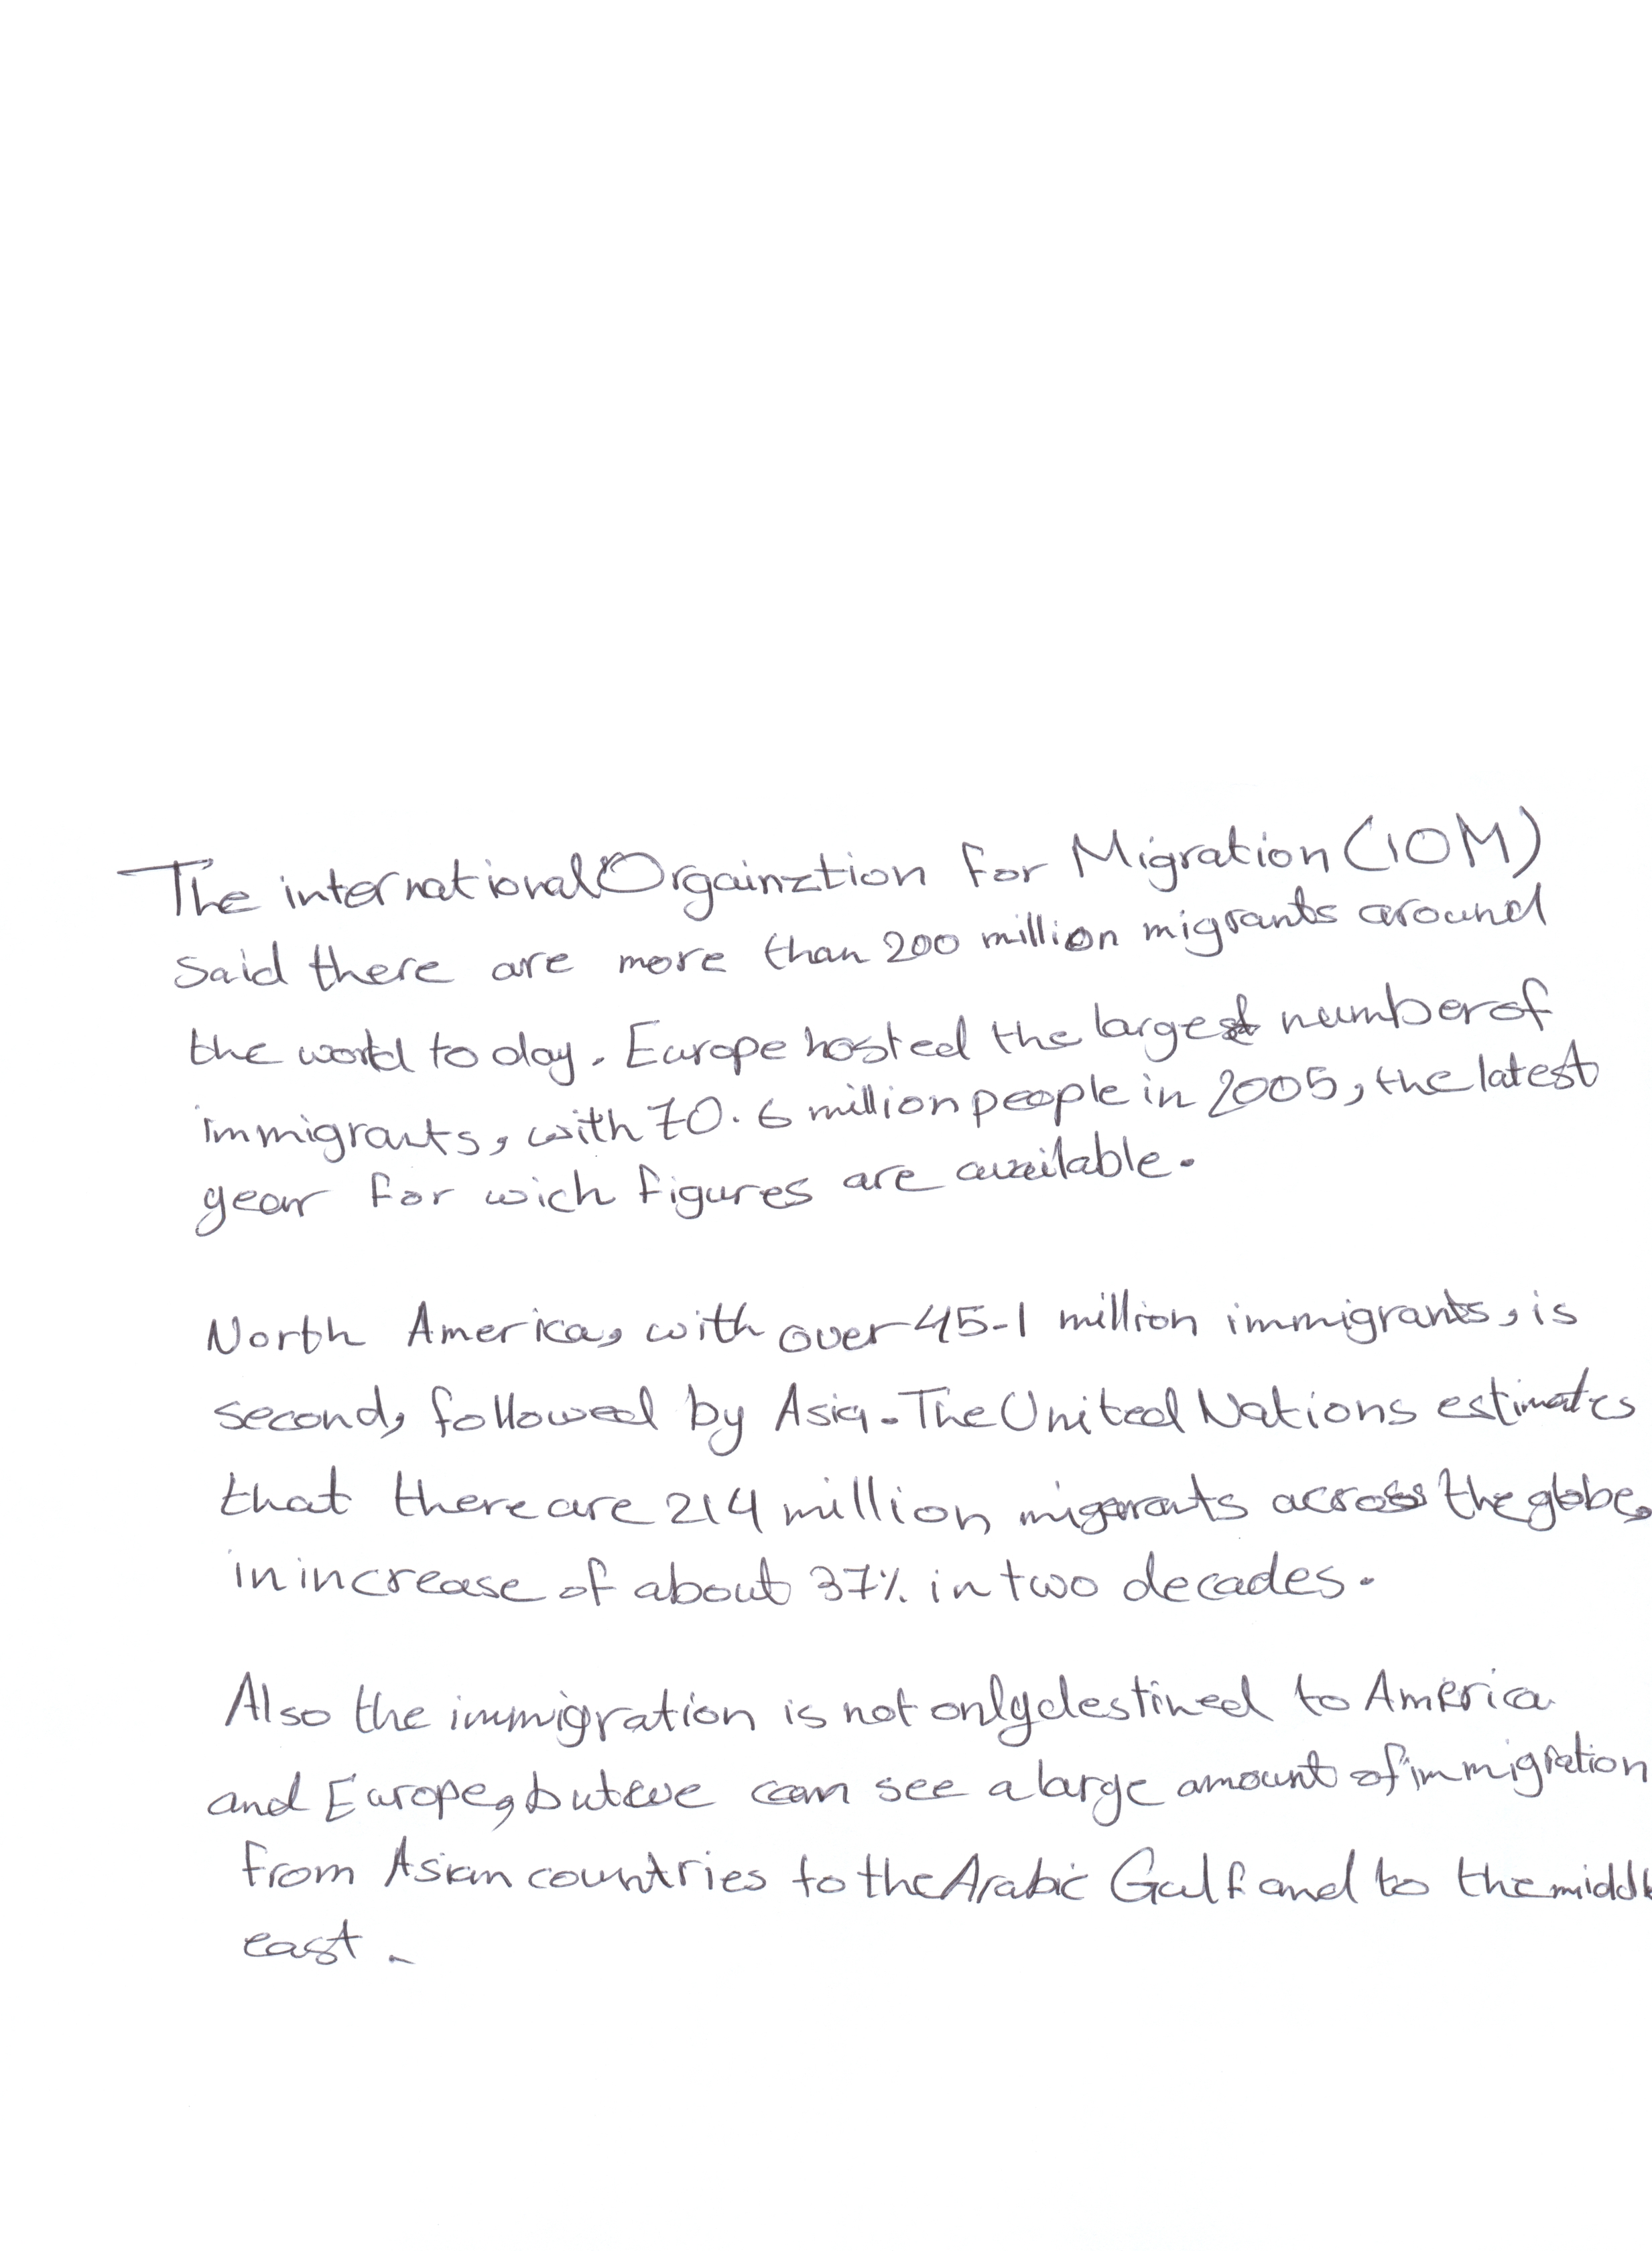 The international Orgainztion for Migration (IOM)
said there are more than 200 million migrants around
the world to day. Europe hosted the largest number of
immigrants, with 70.6 million people in 2005, the latest
year for wich figures are available.
North America, with over 45-1 million immigrants, is
second, followed by Asia. The United Nations estimates
that there are 214 million migrants across the globe,
in increase of about 37% in two decades.
Also the immigration is not only destined to America
and Europe, but we can see a large amount of immigration
from Asian countries to the Arabic Gulf and to the middle
east.